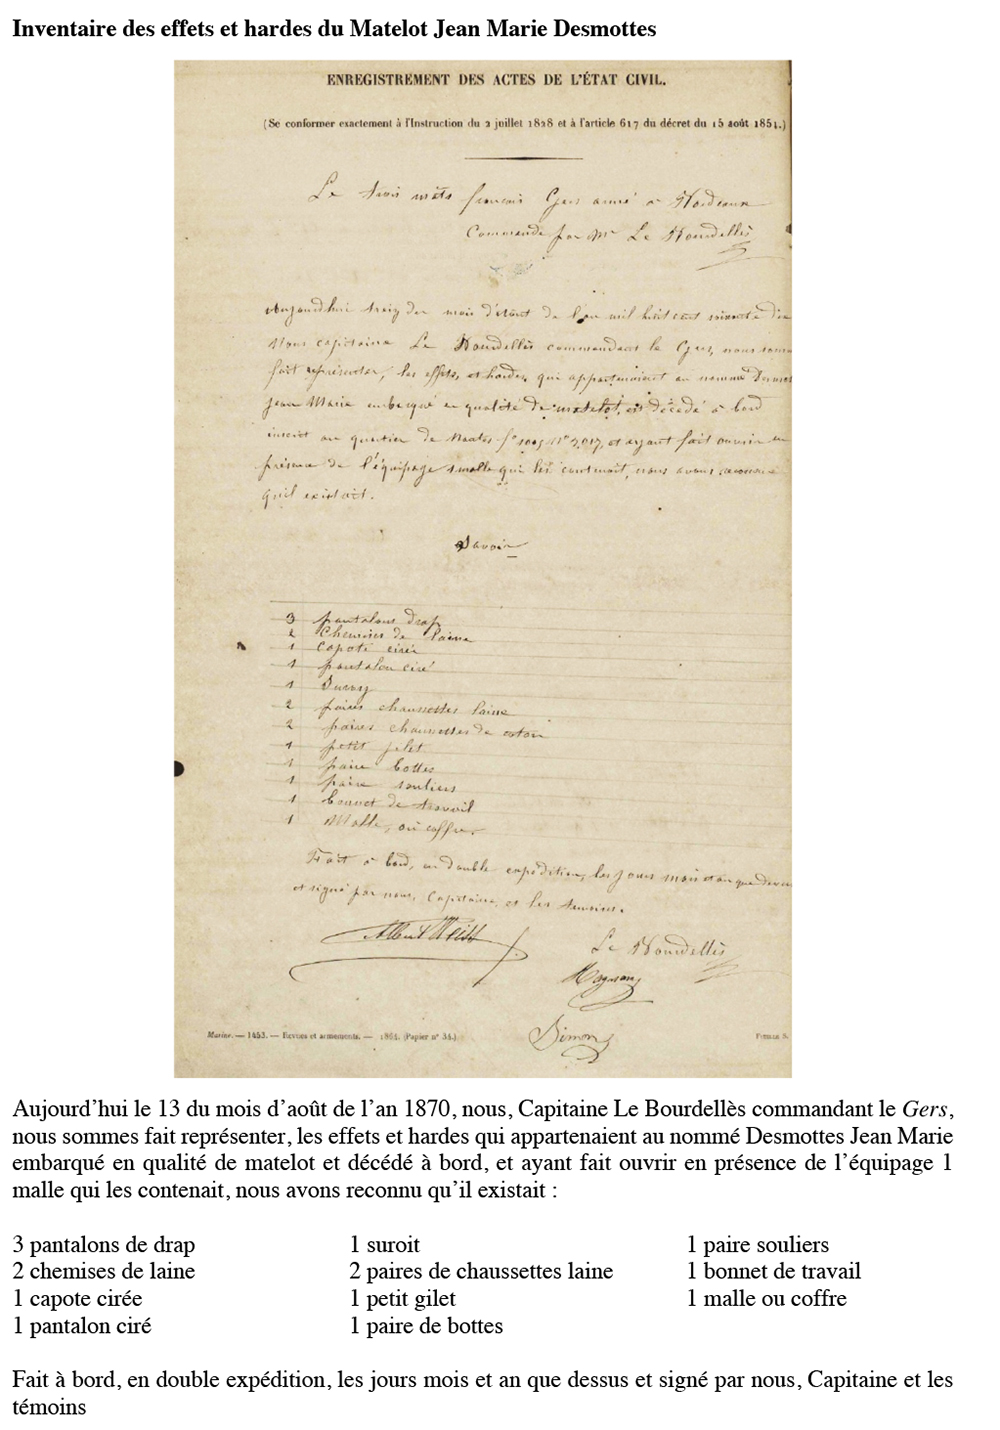 Inventaire des effets et hardes du Matelot Jean Marie Desmottes
ENREGISTREMENT DES ACTES DE L'ÉTAT CIVIL.
(Se conformer exactement à l'Instruction du 2 juillet 1828 et à l'article 617 du décret du 15 août 1851.)
Le trois mâts français Gers armé à Bordeaux
Commandé par Mr Le Bourdellès
Aujourd'hui treize du mois d'août de l'an mil huit cent soixante dix
Nous capitaine Le Bourdellès commandant le Gers, nous somm
fait représenter, les effets, et hardes, qui appartenaient au nommé Desmot
Jean Marie embarqué en qualité de matelot, et décédé à bord
inscrit au quartier de Nantes fo 1009 No 2,017, et ayant fait ouvrir en
présence de l'équipage 1 malle qui les contenait, nous avons reconnu
qu'il existait.
Savoir
3 pantalons drap
2 Chemises de laine
1 Capote cirée
1 pantalon ciré
1 Suroy
2 paires chaussettes laine
2 paires chaussettes de coton
1 petit gilet
1 paire bottes
1 paire souliers
1 bonnet de travail
1 Malle, ou coffre.
Fait à bord, en double expédition, les jours mois et an que dessus
et signé par nous, Capitaine, et les témoins.
Albert Weiss
Le Bourdellès
Simon
Marine. — 1453. — Revues et armements. — 1864. (Papier n° 34.)
Aujourd'hui le 13 du mois d'août de l'an 1870, nous, Capitaine Le Bourdellès commandant le Gers,
nous sommes fait représenter, les effets et hardes qui appartenaient au nommé Desmottes Jean Marie
embarqué en qualité de matelot et décédé à bord, et ayant fait ouvrir en présence de l'équipage 1
malle qui les contenait, nous avons reconnu qu'il existait :
3 pantalons de drap
2 chemises de laine
1 capote cirée
1 pantalon ciré
1 suroit
2 paires de chaussettes laine
1 petit gilet
1 paire de bottes
1 paire souliers
1 bonnet de travail
1 malle ou coffre
Fait à bord, en double expédition, les jours mois et an que dessus et signé par nous, Capitaine et les
témoins